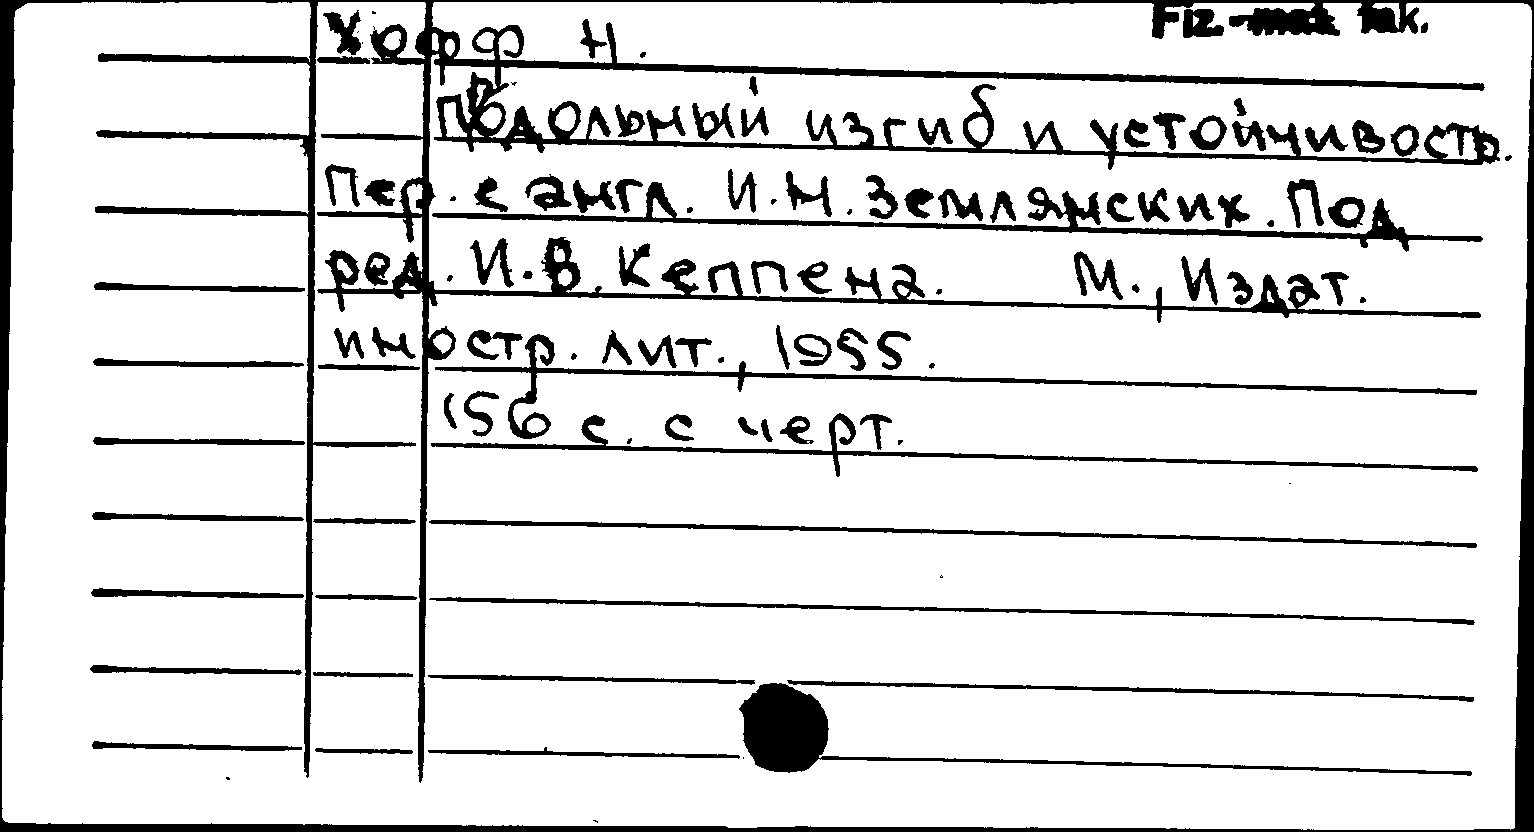 Fiz.-mat. fak.
Хофф Н.
Продольный изгиб и устойчивость.
Пер. с англ. И.Н. Землянских. Под
ред. И.В. Кеппена. М., Издат.
иностр. лит., 1955.
156 с. с черт.